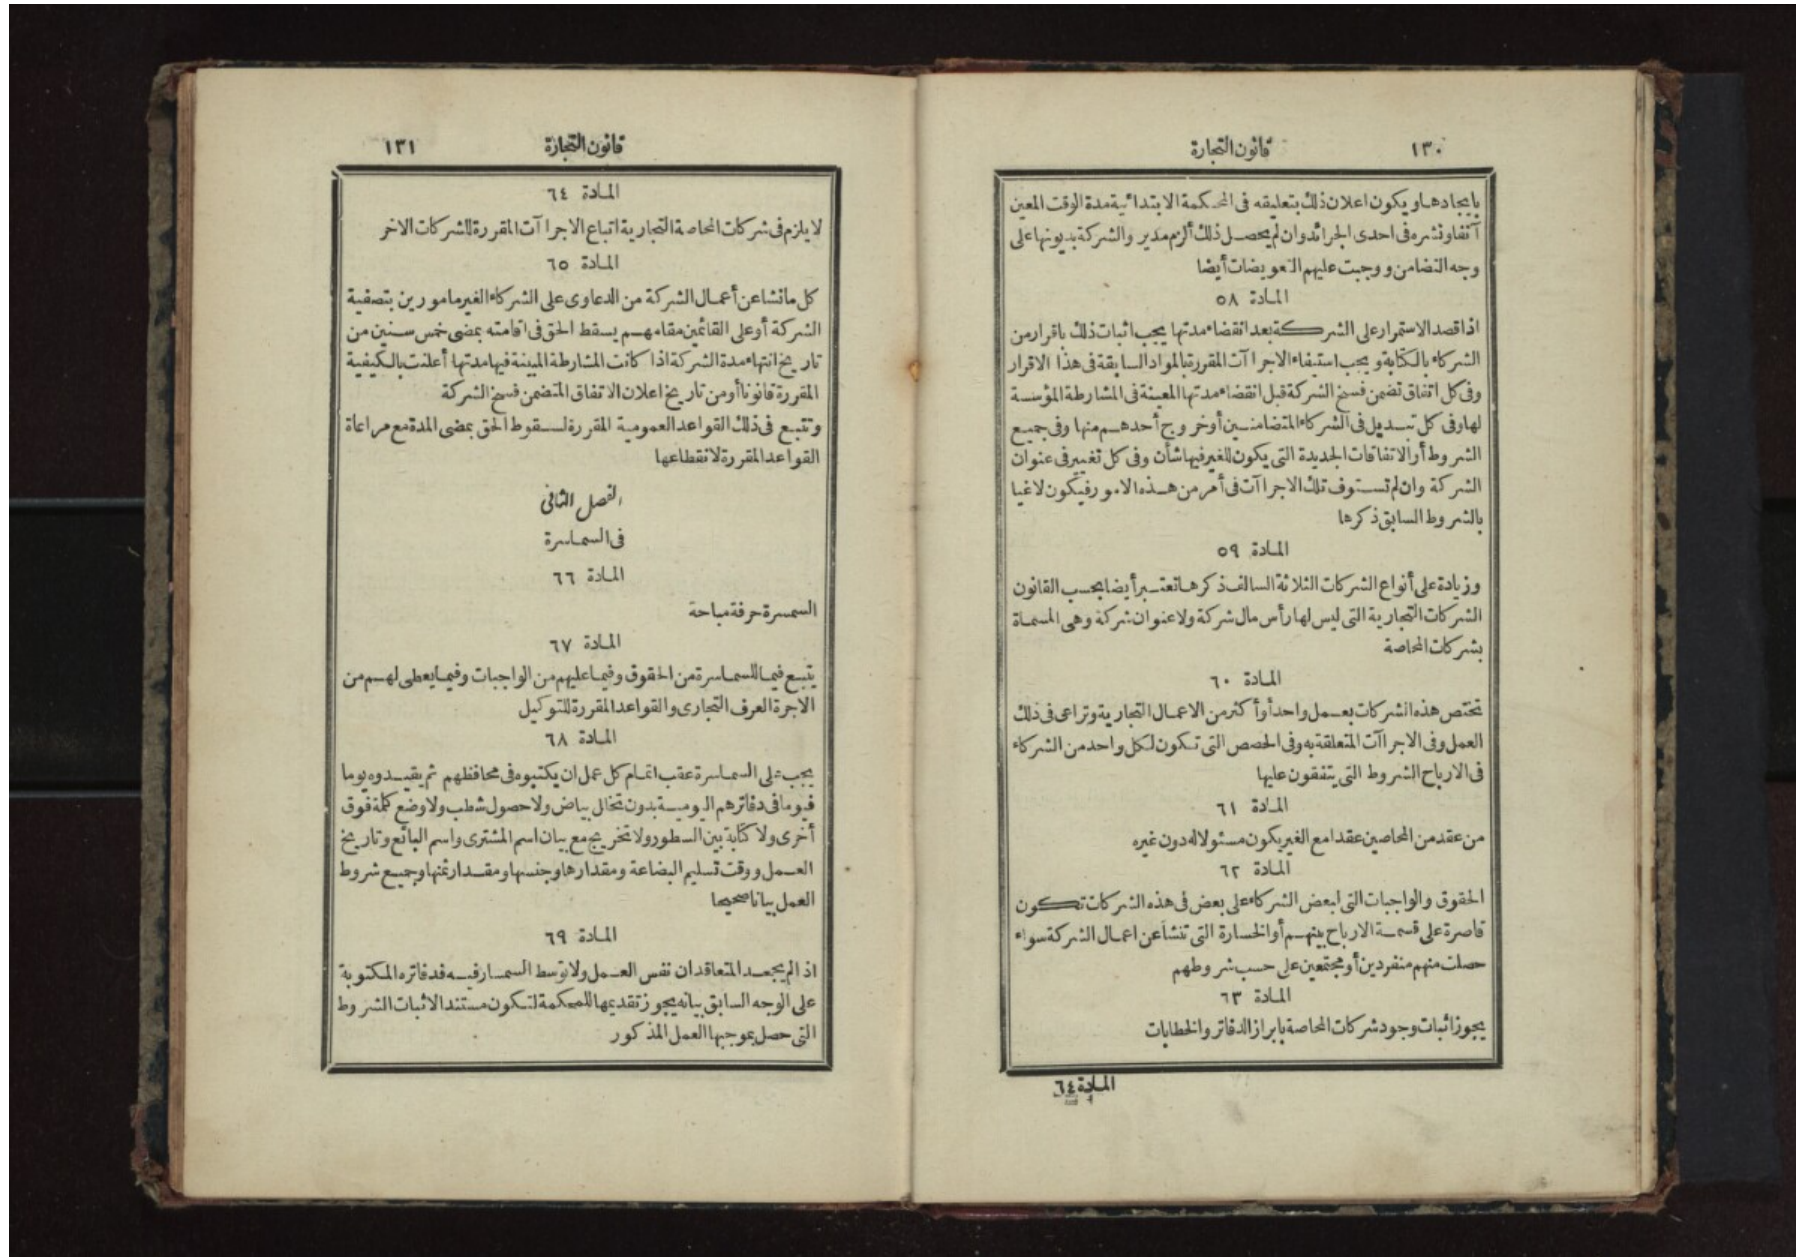 ١٣٠
قانون التجارة
بايجادها ويكون اعلان ذلك بتعليقه فى المحكمة الابتدائية مدة الوقت المعين
آنفا ونشره فى احدى الجرائد وان لم يحصل ذلك ألزم مدير والشركة بديونها على
وجه التضامن ووجبت عليهم التعويضات أيضا
المادة ٥٨
اذا قصد الاستمرار على الشركة بعد انقضاء مدتها يجب اثبات ذلك باقرار من
الشركاء بالكتابة ويجب استيفاء الاجرا آت المقررة بالمواد السابقة فى هذا الاقرار
وفى كل اتفاق تضمن فسخ الشركة قبل انقضاء مدتها المعينة فى المشارطة المؤسسة
لها وفى كل تبديل فى الشركاء المتضامنين أو خروج أحدهم منها وفى جميع
الشروط أو الاتفاقات الجديدة التى يكون للغير فيها شأن وفى كل تغيير فى عنوان
الشركة وان لم تستوف تلك الاجرا آت فى أمر من هذه الامور فيكون لاغيا
بالشروط السابق ذكرها
المادة ٥٩
وزيادة على أنواع الشركات الثلاثة السالف ذكرها تعتبر أيضا بحسب القانون
الشركات التجارية التى ليس لها رأس مال شركة ولا عنوان شركة وهى المسماة
بشركات المحاصة
المادة ٦٠
تختص هذه الشركات بعمل واحد أو أكثر من الاعمال التجارية وتراعى فى ذلك
العمل وفى الاجراآت المتعلقة به وفى الحصص التى تكون لكل واحد من الشركاء
فى الارباح الشروط التى يتفقون عليها
المادة ٦١
من عقد من المحاصين عقدا مع الغير يكون مسئولا له دون غيره
المادة ٦٢
الحقوق والواجبات التى لبعض الشركاء على بعض فى هذه الشركات تكون
قاصرة على قسمة الارباح بينهم أو الخسارة التى تنشأ عن اعمال الشركة سواء
حصلت منهم منفردين أو مجتمعين على حسب شروطهم
المادة ٦٣
يجوز اثبات وجود شركات المحاصة بابراز الدفاتر والخطابات
المادة ٦٤
قانون التجارة
١٣١
المادة ٦٤
لا يلزم فى شركات المحاصة التجارية اتباع الاجرا آت المقررة للشركات الاخر
المادة ٦٥
كل ما نشا عن أعمال الشركة من الدعاوى على الشركاء الغير مامورين بتصفية
الشركة أو على القائمين مقامهم يسقط الحق فى اقامته بمضى خمس سنين من
تاريخ انتهاء مدة الشركة اذا كانت المشارطة المبينة فيها مدتها أعلنت بالكيفية
المقررة قانونا أو من تاريخ اعلان الاتفاق المتضمن فسخ الشركة
وتتبع فى ذلك القواعد العمومية المقررة لسقوط الحق بمضى المدة مع مراعاة
القواعد المقررة لانقطاعها
الفصل الثانى
فى السماسرة
المادة ٦٦
السمسرة حرفة مباحة
المادة ٦٧
يتبع فيما للسماسرة من الحقوق وفيما عليهم من الواجبات وفيما يعطى لهم من
الاجرة العرف التجارى والقواعد المقررة للتوكيل
المادة ٦٨
يجب على السماسرة عقب اتمام كل عمل ان يكتبوه فى محافظهم ثم يقيدوه يوما
فيوما فى دفاترهم اليومية بدون تخلل بياض ولا حصول شطب ولا وضع كلمة فوق
أخرى ولا كتابة بين السطور ولا تخريج مع بيان اسم المشترى واسم البائع وتاريخ
العمل ووقت تسليم البضاعة ومقدارها وجنسها ومقدار ثمنها وجميع شروط
العمل بيانا صحيحا
المادة ٦٩
اذا لم يجحد المتعاقدان نفس العمل ولا توسط السمسار فيه فدفاتره المكتوبة
على الوجه السابق بيانه يجوز تقديمها للمحكمة لتكون مستند الاثبات الشروط
التى حصل بموجبها العمل المذكور